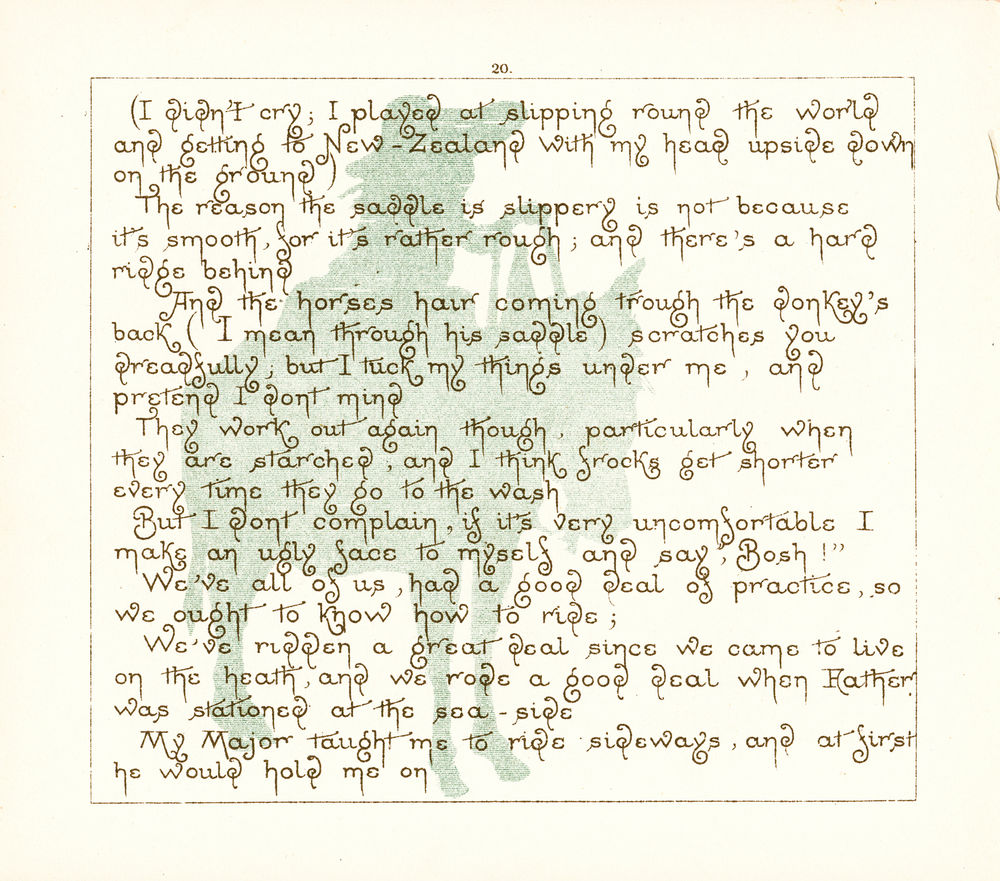 20.
(I didn't cry; I played at slipping round the world
and getting to New-Zealand with my head upside down
on the ground)
The reason the saddle is slippery is not because
it's smooth, for it's rather rough; and there's a hard
ridge behind
And the horses hair coming trough the donkey's
back (I mean through his saddle) scratches you
dreadfully; but I tuck my things under me, and
pretend I dont mind
They work out again though, particularly when
they are starched, and I think frocks get shorter
every time they go to the wash
But I dont complain, if it's very uncomfortable I
make an ugly face to myself and say, "Bosh!"
We've all of us, had a good deal of practice, so
we ought to know how to ride;
We've ridden a great deal since we came to live
on the heath, and we rode a good deal when Father
was stationed at the sea-side
My Major taught me to ride sideways, and at first
he would hold me on